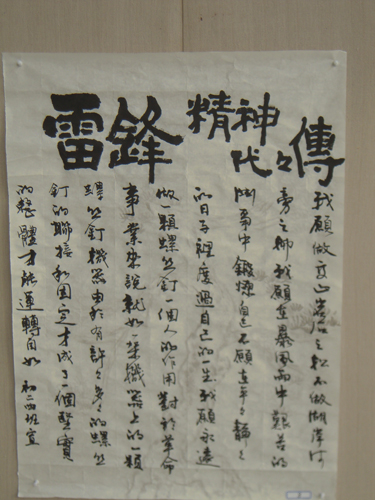 雷鋒精神
代々傳
我願做高山岩石之松不做湖岸河
旁之柳我願在暴風雨中艱苦的
鬥爭中鍛煉自己不願在平々靜々
的日子裡度過自己的一生我願永遠
做一顆螺丝釘一個人的作用對於革命
事業來說就如一架機器上的一顆
螺丝釘機器由於有許々多々的螺丝
釘的聯接和固定才成了一個堅實
的整體才能運轉自如 初二四班宣